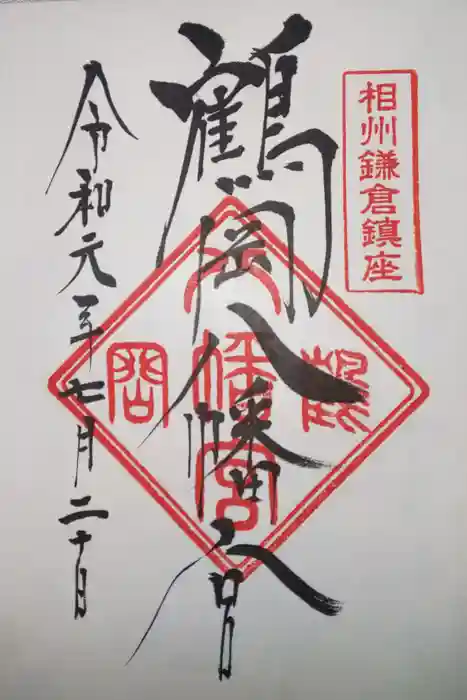 相州鎌倉鎮座
鶴岡八幡宮
令和元年七月二十日